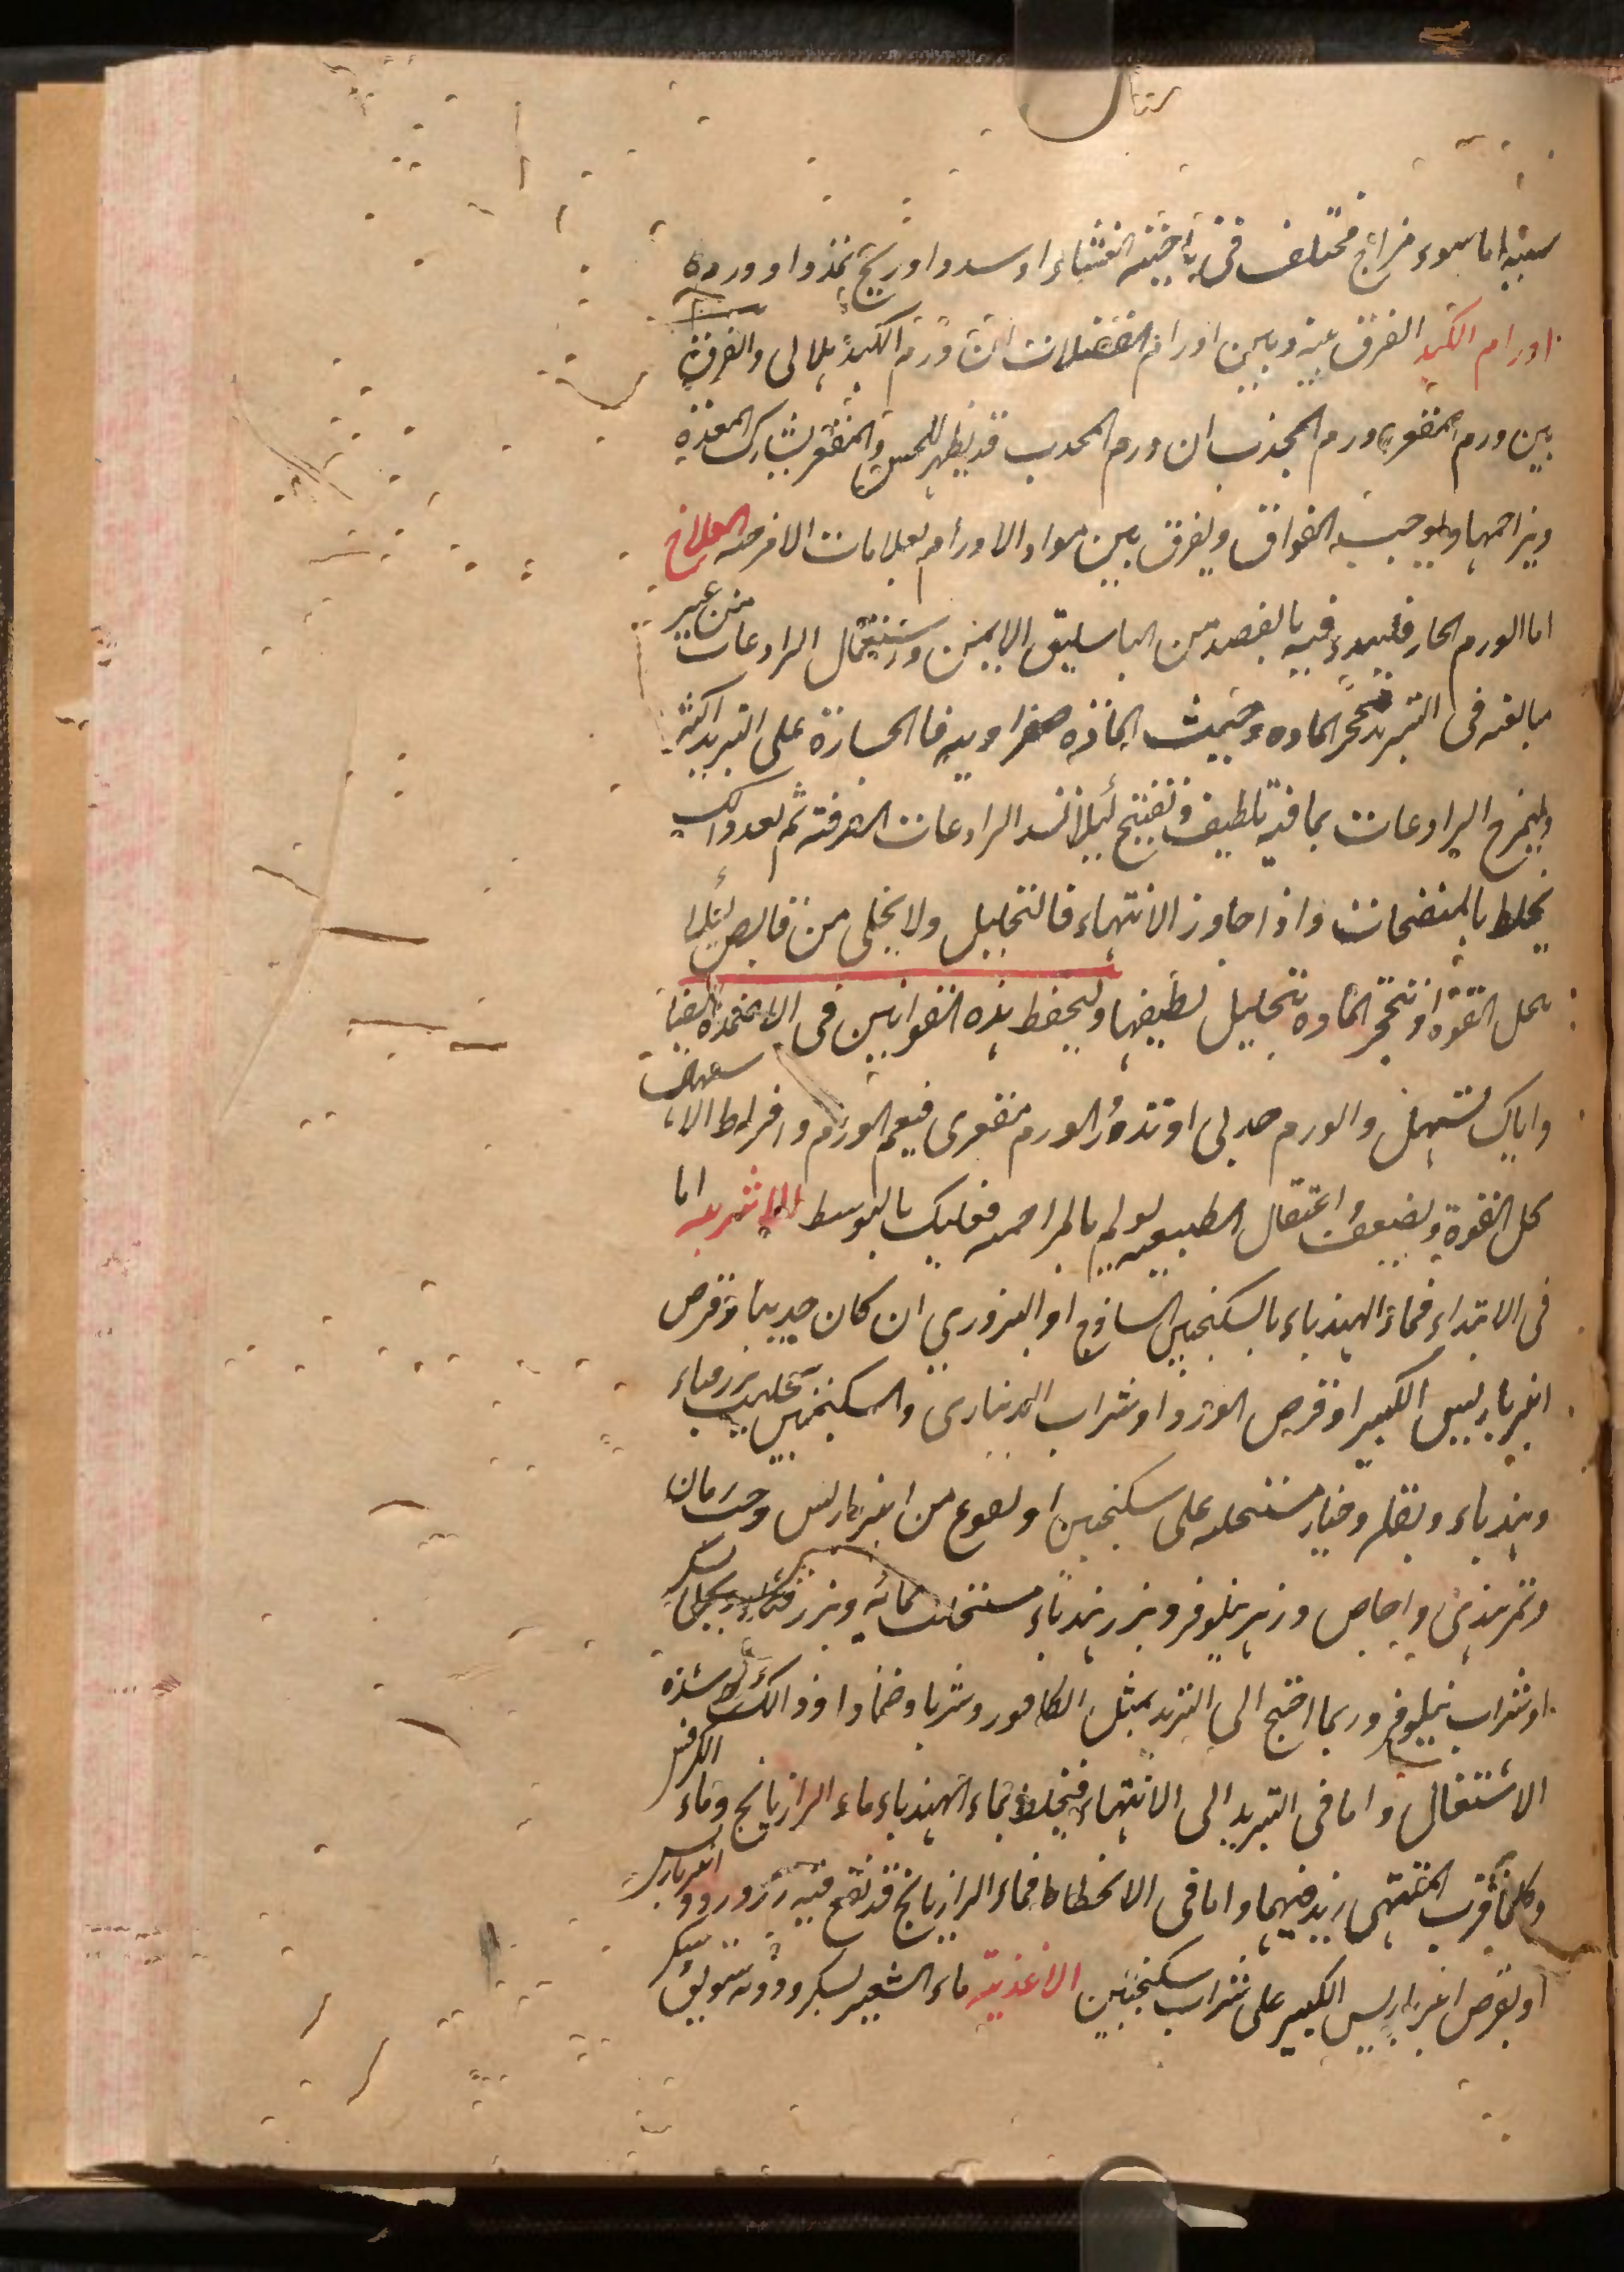 سببه اما سوء مزاج مختلف فى ناحية الغشاء او سدد او ريح تمدد او ورم
اورام الكبد الفرق بينه وبين اورام العضلات ان ورم الكبد هلالى والفرق
بين ورم المقعر ورم المحدب ان ورم المحدب قد يظهر للحس والمقعر يشارك المعدة
ويزاحمها ويوجب الفواق ويفرق بين مواد الاورام بعلامات الامزجه العلاج
اما الورم الحار فليبدء فيه بالفصد من الباسليق الايمن واستعمال الرادعات من غير
مبالغه فى التبريد فتحجر الماده وحيث الماده صفراويه فالجسارة على التبريد اكثر
وليمزج الرادعات بما فيه تلطيف وتفتيح لئلا تسد الرادعات المعرفته ثم بعد ذالك
تخلط بالمنضجات واذا جاوز الانتهاء فالتحليل ولا يخلى من قابض لئلا
تحل القوة او تتحجر المادة بتحليل لطيفها وليحفظ هذه القوانين فى الاضمدة ايضا
واياك تسهل والورم حدبى او تدر والورم مقعرى فيعم الورم وافراط الاسهال
يحل القوة ويضعف واعتقال الطبيعه يولم بالمزاحمه فعليك بالتوسط الاشربه اما
فى الابتداء فماء الهندباء بالسكنجبين الساذج او البزورى ان كان حدبيا وقرص
انبرباريس الكبير او قرص الورد او شراب الدينارى والسكنجبين بحليب بزر قثاء
وهندباء وبقله وخيار مستحلبه على سكنجبين او نقوع من انبرباريس وحب رمان
وتمر هندى واجاص وزهر نيلوفر وبزر هندباء مستحلب بمائه وبزر قثاء يحلى بسكر
او شراب نيلوفر وربما احتيج الى التبريد بمثل الكافور وشربا وضمادا وذالك لشدة
الاشتعال واما فى التزيد الى الانتهاء فيخلط بماء الهندباء ماء الرازيانج وماء الكرفس
وكلما قرب المنتهى زيد فيهما واما فى الانحطاط فماء الرازيانج قد نقع فيه زر ورد وانبرباريس
او بقرص انبرباريس الكبير على شراب سكنجبين الاغذيه ماء الشعير بسكر ودونه سويق بسكر